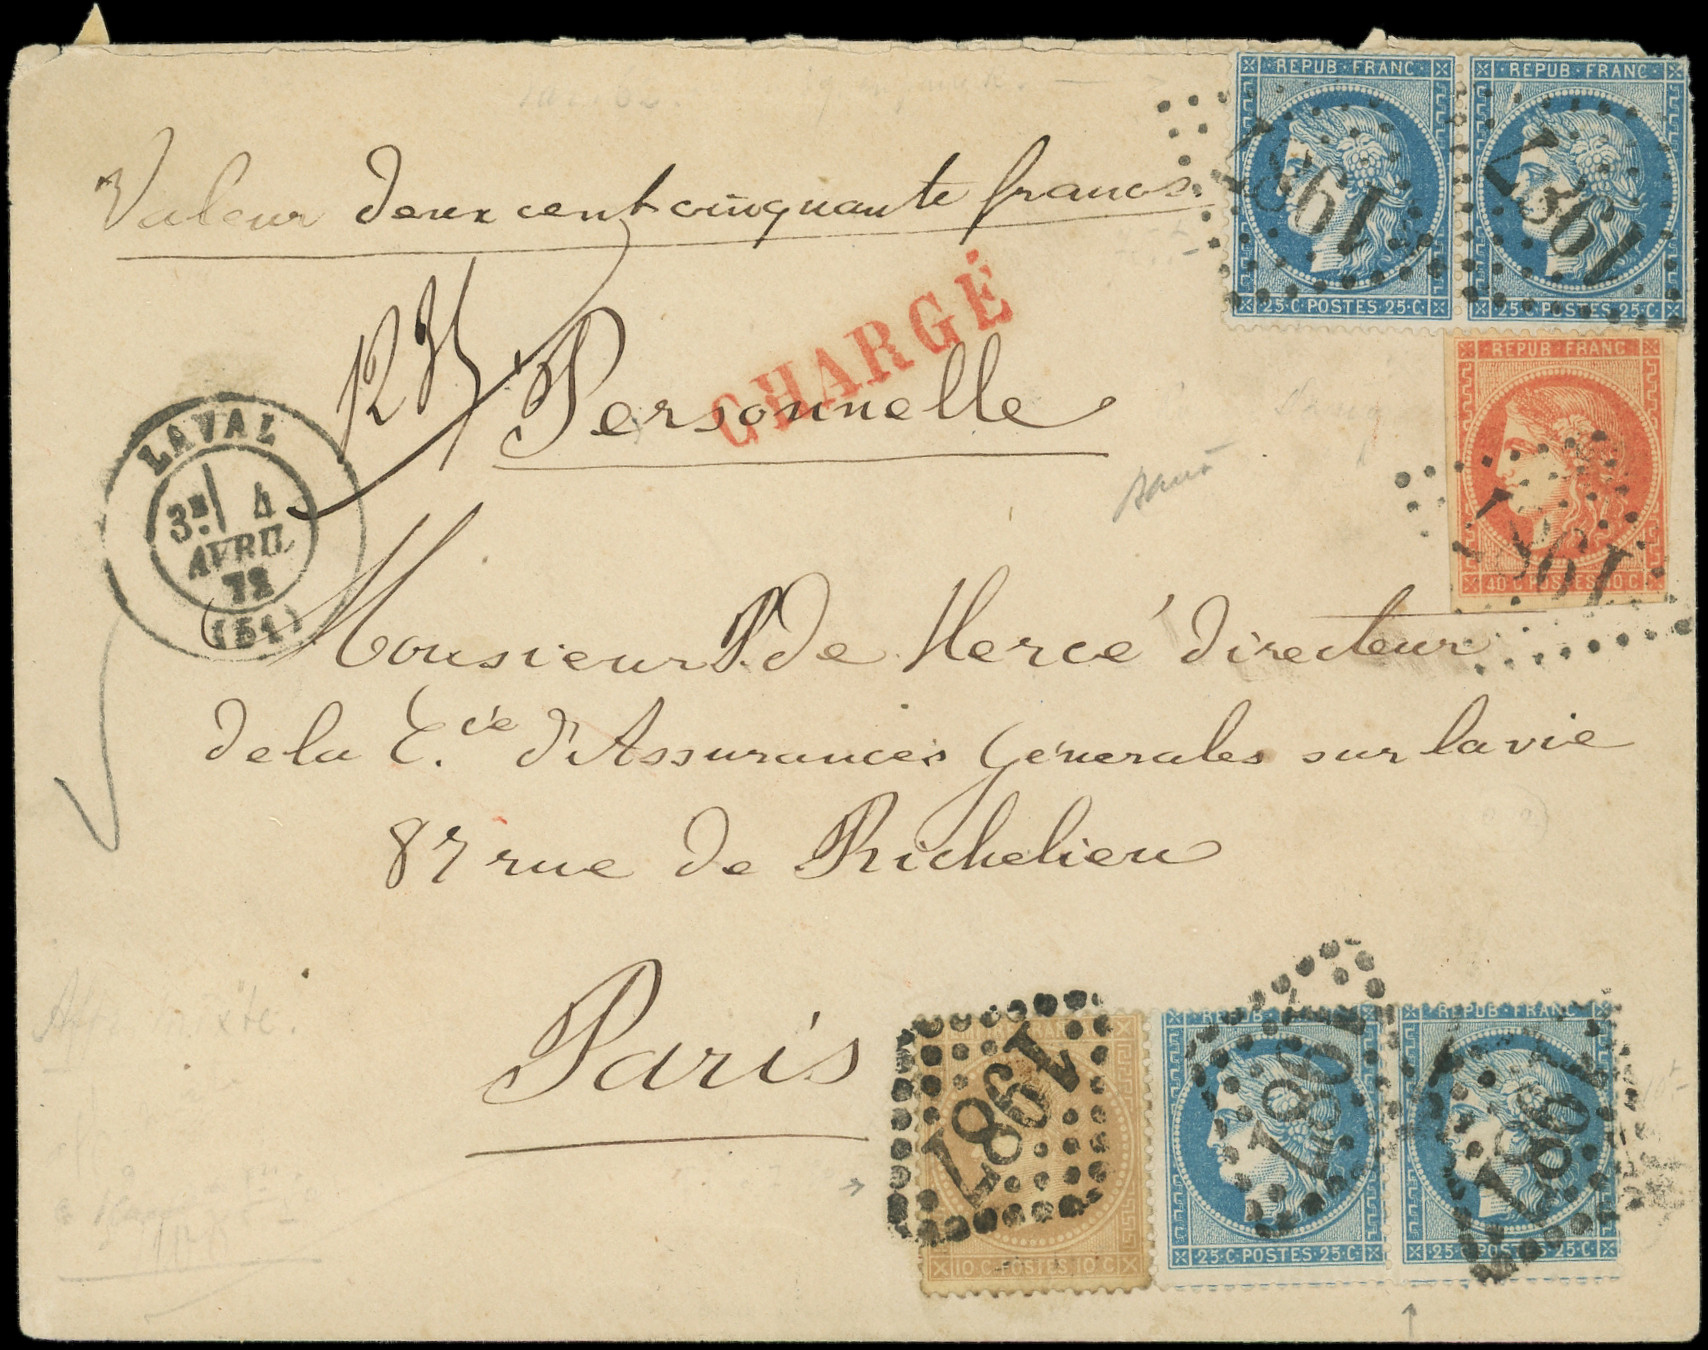 REPUB·FRANC REPUB·FRANC
Valeur deux cent cinquante francs
1987 1987
25·C·POSTES 25·C· 25·C·POSTES 25·C·
CHARGÉ
Personnelle
REPUB·FRANC
1987
40 C·POSTES 40 C
LAVAL
3E 4
AVRIL
72
(51)
Monsieur P. de Hercé directeur
de la Cie d'Assurances Générales sur la vie
87 rue de Richelieu
Paris
Aff. mixte.
REPUB·FRANC REPUB·FRANC
1987 1987 1987
10 C·POSTES 10 C 25·C·POSTES 25·C· 25·C·POSTES 25·C·